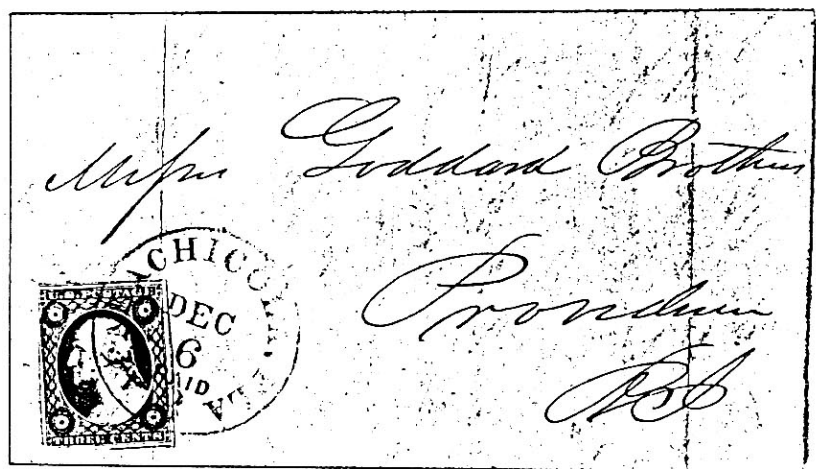 Messrs Goddard Brothers
Providence
R I
ACHICO
DEC
6
PAID
THREE CENTS